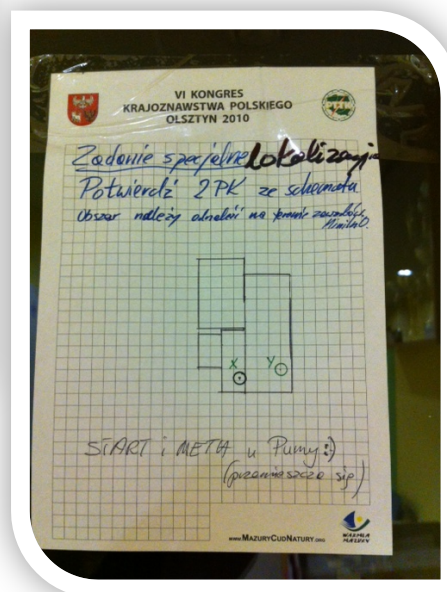 VI KONGRES
KRAJOZNAWSTWA POLSKIEGO
OLSZTYN 2010
Zadanie specjalne Lokalizacja
Potwierdź 2PK ze schematu
Obszar należy odnaleźć na terenie zawodów
X Y
START i META u Pumy :)
(przemieszcza się)
www.MAZURYCUDNATURY.org
WARMIA
MAZURY